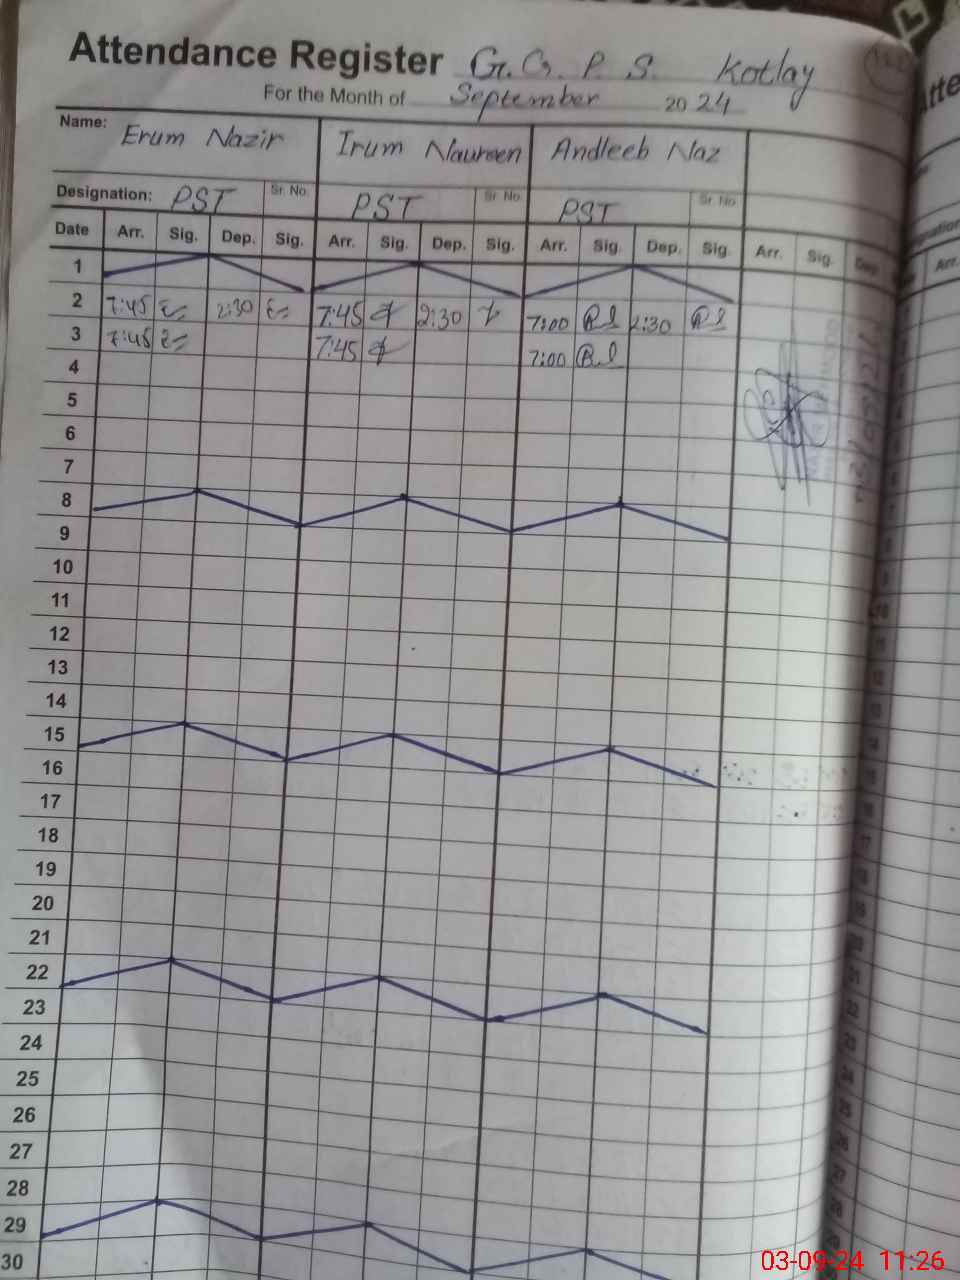 Attendance Register G.G.P.S. Kotlay
For the Month of September 2024
Name: Erum Nazir Irum Naureen Andleeb Naz
Designation: PST Sr. No. PST Sr. No. PST Sr. No.
Date Arr. Sig. Dep. Sig. Arr. Sig. Dep. Sig. Arr. Sig. Dep. Sig. Arr. Sig. Dep.
1
2 7:45 2:30 7:45 2:30 7:00 2:30
3 7:45 7:45 7:00
4
5
6
7
8
9
10
11
12
13
14
15
16
17
18
19
20
21
22
23
24
25
26
27
28
29
30
03-09-24 11:26